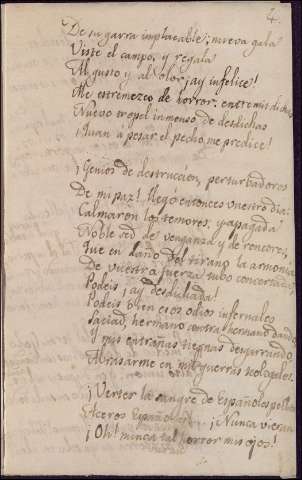 4.
De su garra implacable; nueva gala
Viste el campo, y regala
Al gusto y al olor ¡ay infelice!
Me estremezco de horror: entre mis dichas
Nuevo tropel inmenso de desdichas
¡Quan a pesar el pecho me predice!
¡Genios de destruccion, perturbadores
De mi paz! llegó entonces vuestro dia:
Calmaron los temores, y apagada
Noble sed de venganza y de rencores,
Que en daño del tirano la armonia
De vuestra fuerza tubo concertada,
Podeis ¡ay desdichada!
Podeis bien esos odios infernales
Saciad, hermano contra hermano dando,
Y mis entrañas tiernas desgarrando
Abrasarme en mil guerras
¡Verter la sangre de Españoles
Aceros Españoles ¡Nunca vieran
¡Oh! nunca tal horror mis ojos!